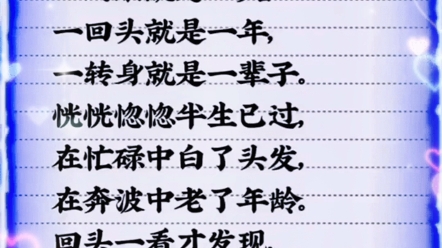 一回头就是一年,
一转身就是一辈子。
恍恍惚惚半生已过,
在忙碌中白了头发,
在奔波中老了年龄。
回头一看才发现,